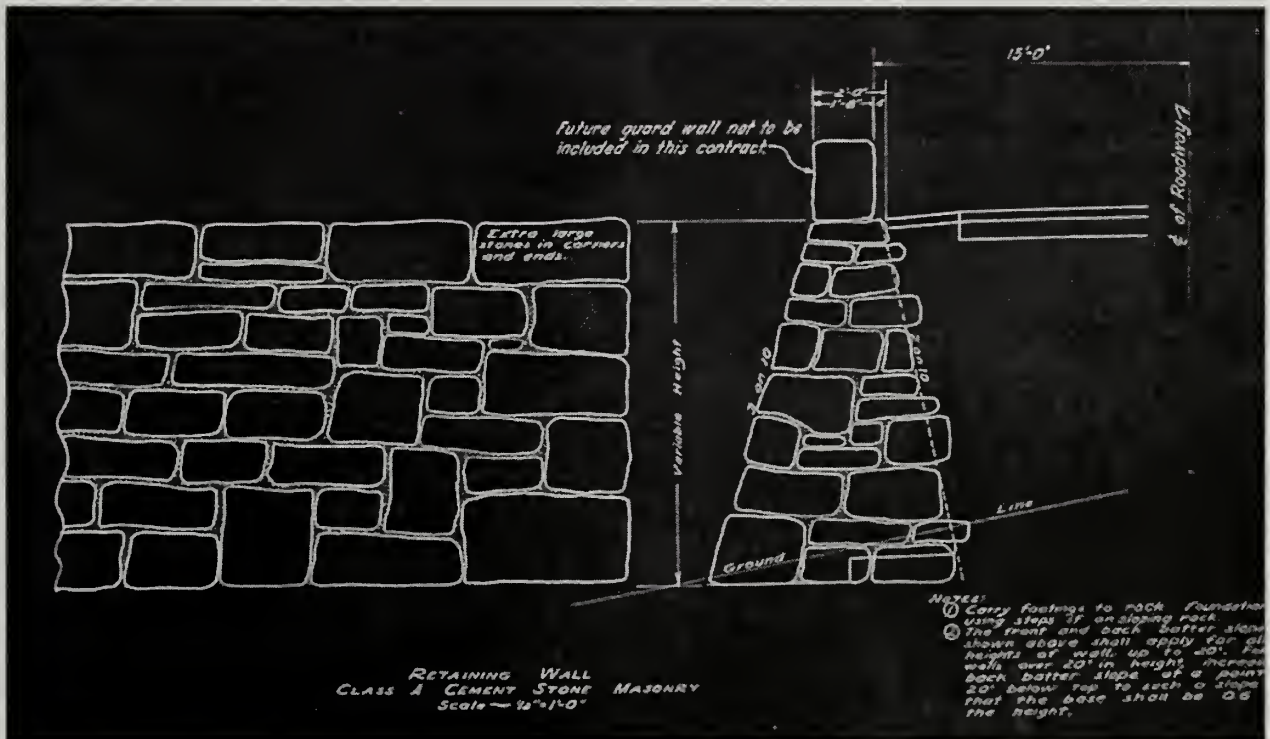 15'-0"
2'-0"
1'-8"
Future guard wall not to be
included in this contract.
℄ of Roadway
Extra large
stones in corners
and ends.
Variable Height
on 10
on 10
Ground Line
NOTES:
① Carry footings to rock foundation
using steps if on sloping rock.
② The front and back batter slope
shown above shall apply for all
heights of wall up to 20'. For
walls over 20' in height, increase
back batter slope at a point
20' below top to such a slope
that the base shall be 0.6
the height.
RETAINING WALL
CLASS A CEMENT STONE MASONRY
Scale — 1'-0"